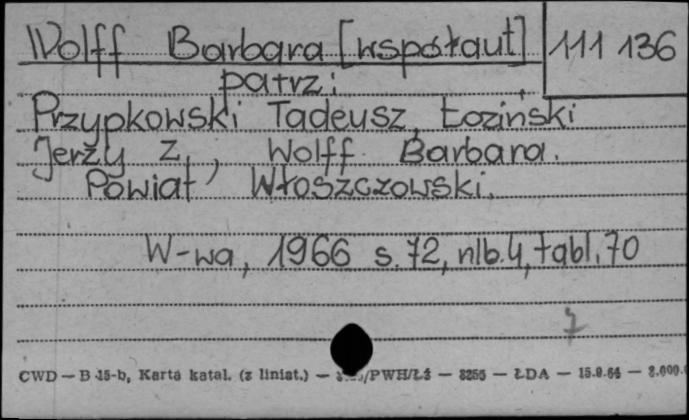 Wolff Barbara [współaut] 111 136
patrz:
Przypkowski Tadeusz, Łoziński
Jerzy Z., Wolff Barbara.
Powiat Włoszczowski.
W-wa, 1966 s. 72, nlb. 4, tabl. 70
7
CWD — B 15-b, Karta katal. (z liniat.) — /PWH/Łż — 8256 — ŁDA — 15.9.64 —